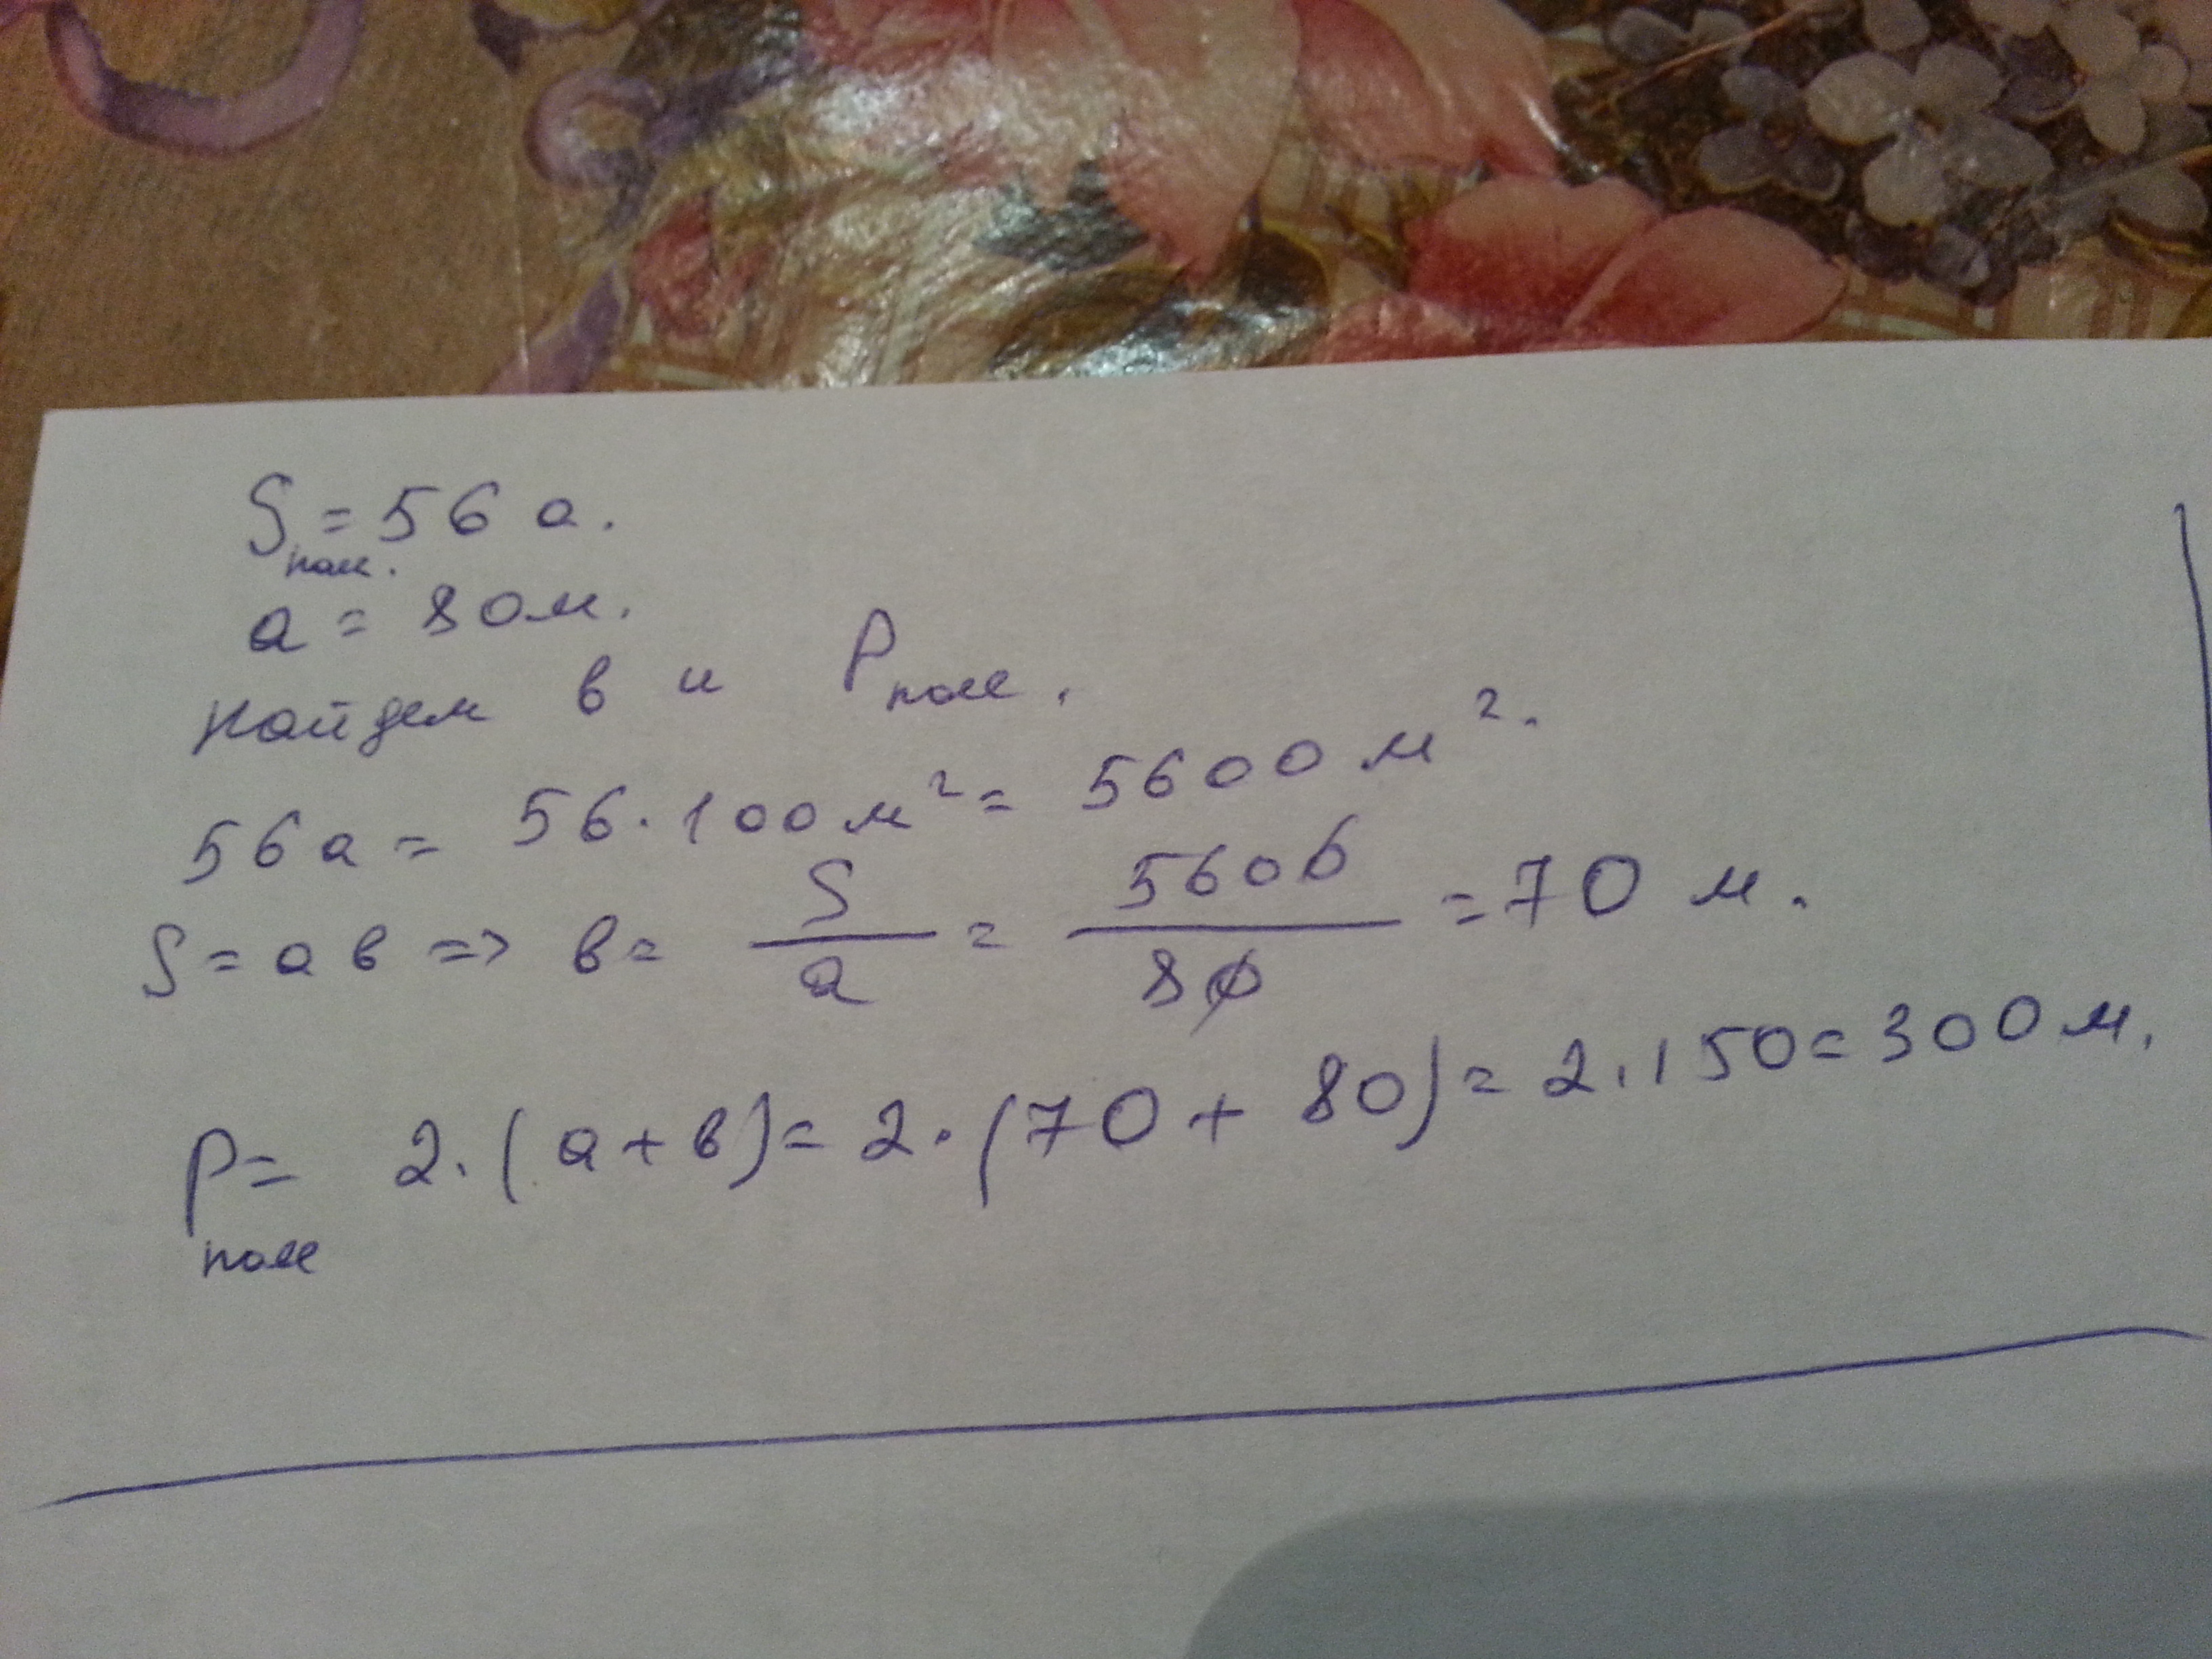 S поле. = 56 а.
а = 80 м.
Найдем в и P поле.
56 а = 56 · 100 м² = 5600 м².
S = а в => в = S/а = 5600/80 = 70 м.
P поле = 2 · (а + в) = 2 · (70 + 80) = 2 · 150 = 300 м.